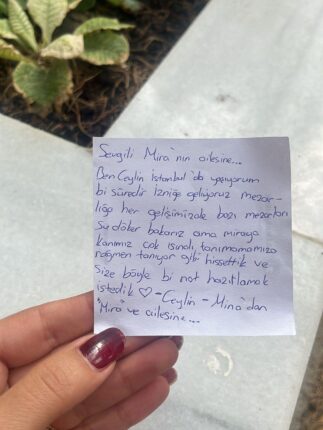 Sevgili Mira'nın ailesine...
Ben Ceylin İstanbul'da yaşıyorum
bi süredir İzniğe geliyoruz mezar-
lığa her gelişimizde bazı mezarları
su döker bakarız ama miraya
kanımız çok ısındı tanımamamıza
rağmen tanıyor gibi hissettik ve
size böyle bi not hazırlamak
istedik ♡ - Ceylin - Mina'dan
"Mira" ve ailesine...